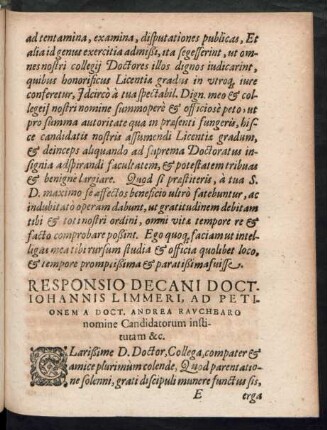 ad tentamina, examina, disputationes publicas, Et
alia id genus exercitia admißi, ita se gesserint, ut om-
nes nostri collegij Doctores illos dignos iudicarint,
quibus honorificus Licentia gradus in vtroq, iure
conferetur, Idcircò à tua spectabil. Dign. meo & col-
legij nostri nomine summoperè & officiosè peto, ut
pro summa autoritate qua in præsenti fungeris, hisce
candidatis nostris assumendi Licentiæ gradum,
& deinceps aliquando ad suprema Doctoratus in-
signia adspirandi facultatem, & potestatem tribuas
& benignè largiare. Quod si præstiteris, à tua S.
D. maximo se affectos beneficio ultrò fatebuntur, ac
indubitatò operam dabunt, ut gratitudinem debitam
tibi & toti nostri ordini, omni vitæ tempore re &
facto comprobare poßint. Ego quoq, faciam ut intel-
ligas mea tibi rursum studia & officia quolibet loco,
& tempore promptißima & paratißima fuisse.
RESPONSIO DECANI DOCT.
IOHANNIS LIMMERI, AD PETI-
ONEM A DOCT. ANDREA RAVCHBARO
nomine Candidatorum insti-
tutam &c.
CLarißime D. Doctor, Collega, compater &
amice plurimùm colende, Quod parentatio-
ne solenni, grati discipuli munere functus sis,
E erga